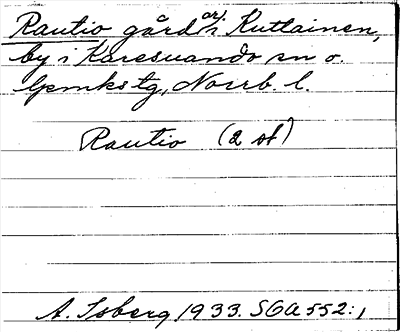 Rautio gård ar/ i Kuttainen,
by i Karesuando sn o.
lpmkstg, Norrb. l.
Rautio (2 st)
A. Isberg 1933. SOA 552:1